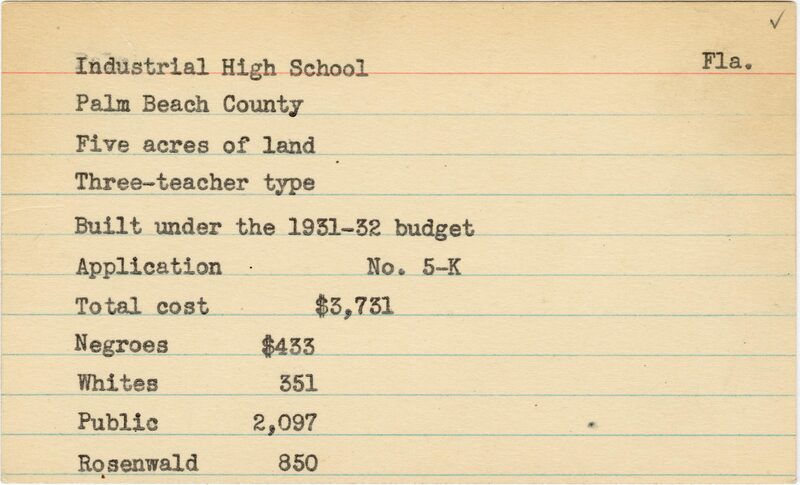 Industrial High School Fla.
Palm Beach County
Five acres of land
Three-teacher type
Built under the 1931-32 budget
Application No. 5-K
Total cost $3,731
Negroes $433
Whites 351
Public 2,097
Rosenwald 850